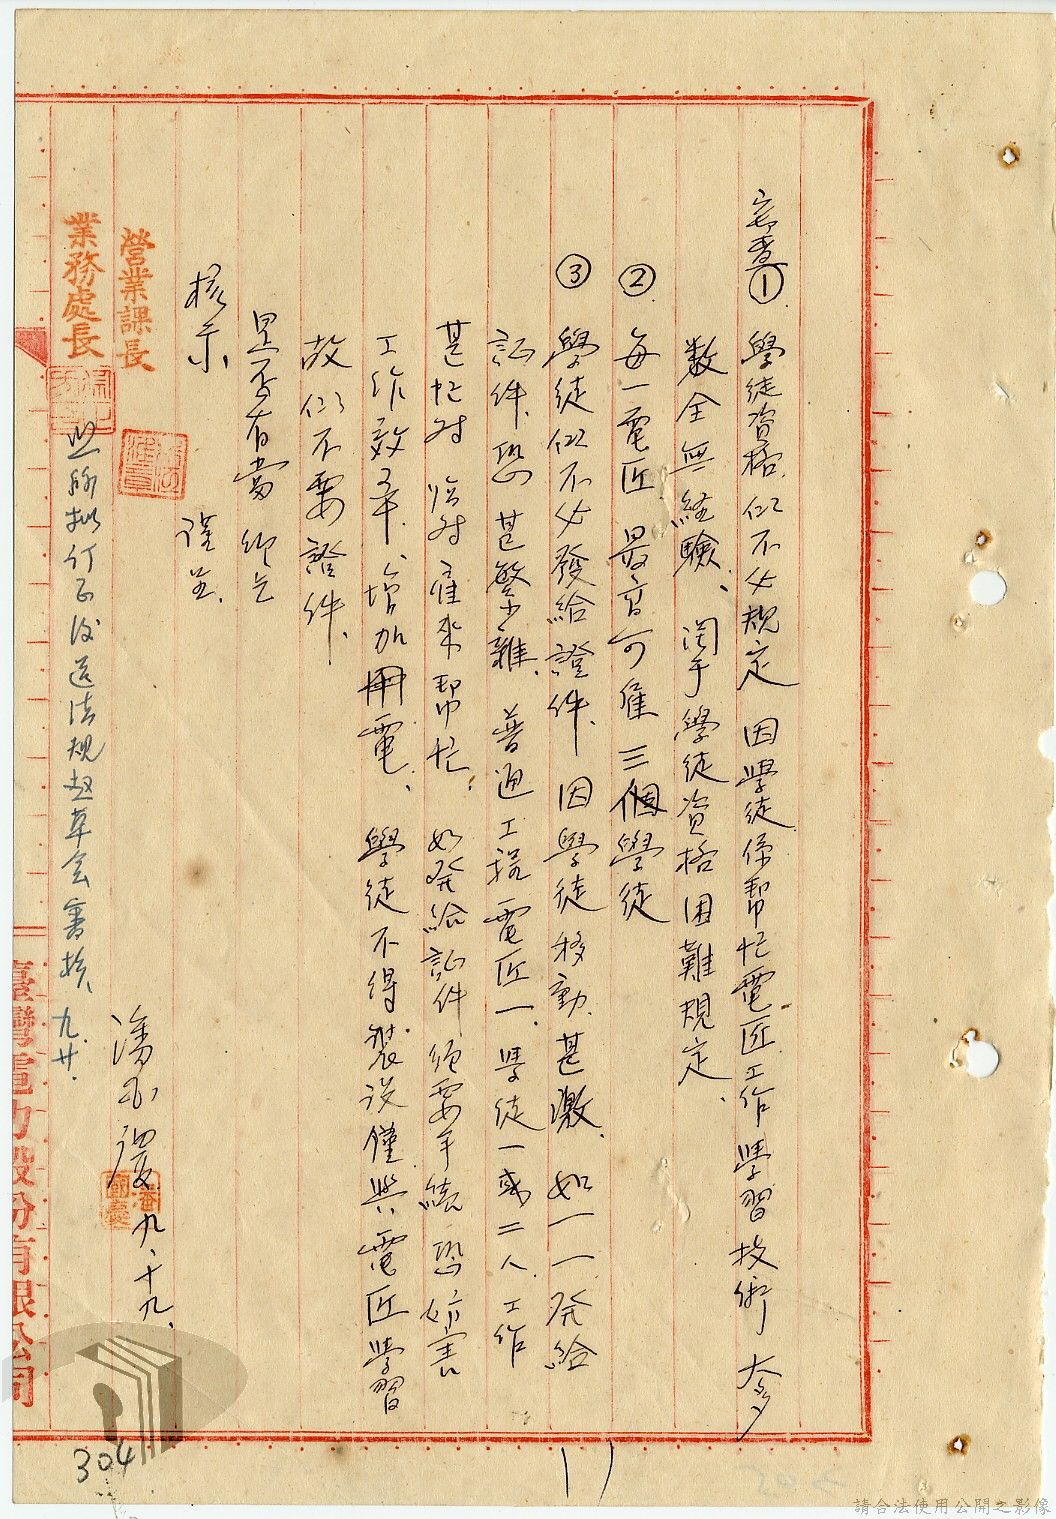 審查①學徒資格似不必規定 因學徒係幫忙電匠工作學習技術 大多
數全無経驗、関于學徒資格困難規定、
② 每一電匠 最高可雇三個學徒
③ 學徒似不必發給證件、因學徒移動甚激、如一一発給
証件、恐甚繁雜、普通工程電匠一、學徒一或二人、工作
甚忙時 臨時雇來幫忙、如発給証件 須要手續恐妨害
工作效率、增加用電、學徒不得裝設僅與電匠學習
故似不要證件、
是否有當 仰乞
核示、 謹呈、
營業課長
潘國慶 九、十九、
業務處長
照所擬 行正後送法規起草会審核、九、廿、
臺灣電力股份有限公司
304
請合法使用公開之影像